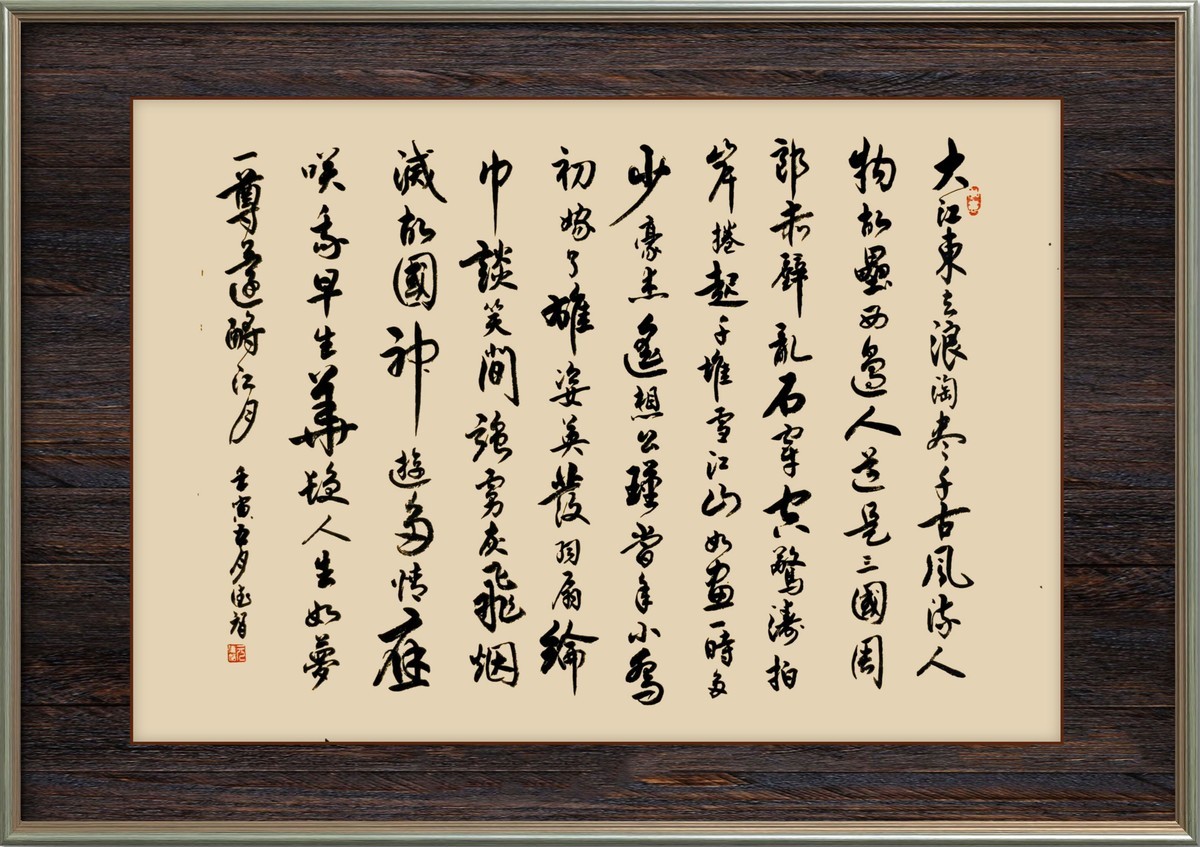 大江東去浪淘盡千古風流人
物故壘西邊人道是三國周
郎赤壁亂石穿空驚濤拍
岸捲起千堆雪江山如畫一時多
少豪杰遙想公瑾當年小喬
初嫁了雄姿英發羽扇綸
巾談笑間強虜灰飛烟
滅故國神遊多情應
笑我早生華髮人生如夢
一尊還酹江月
壬寅五月